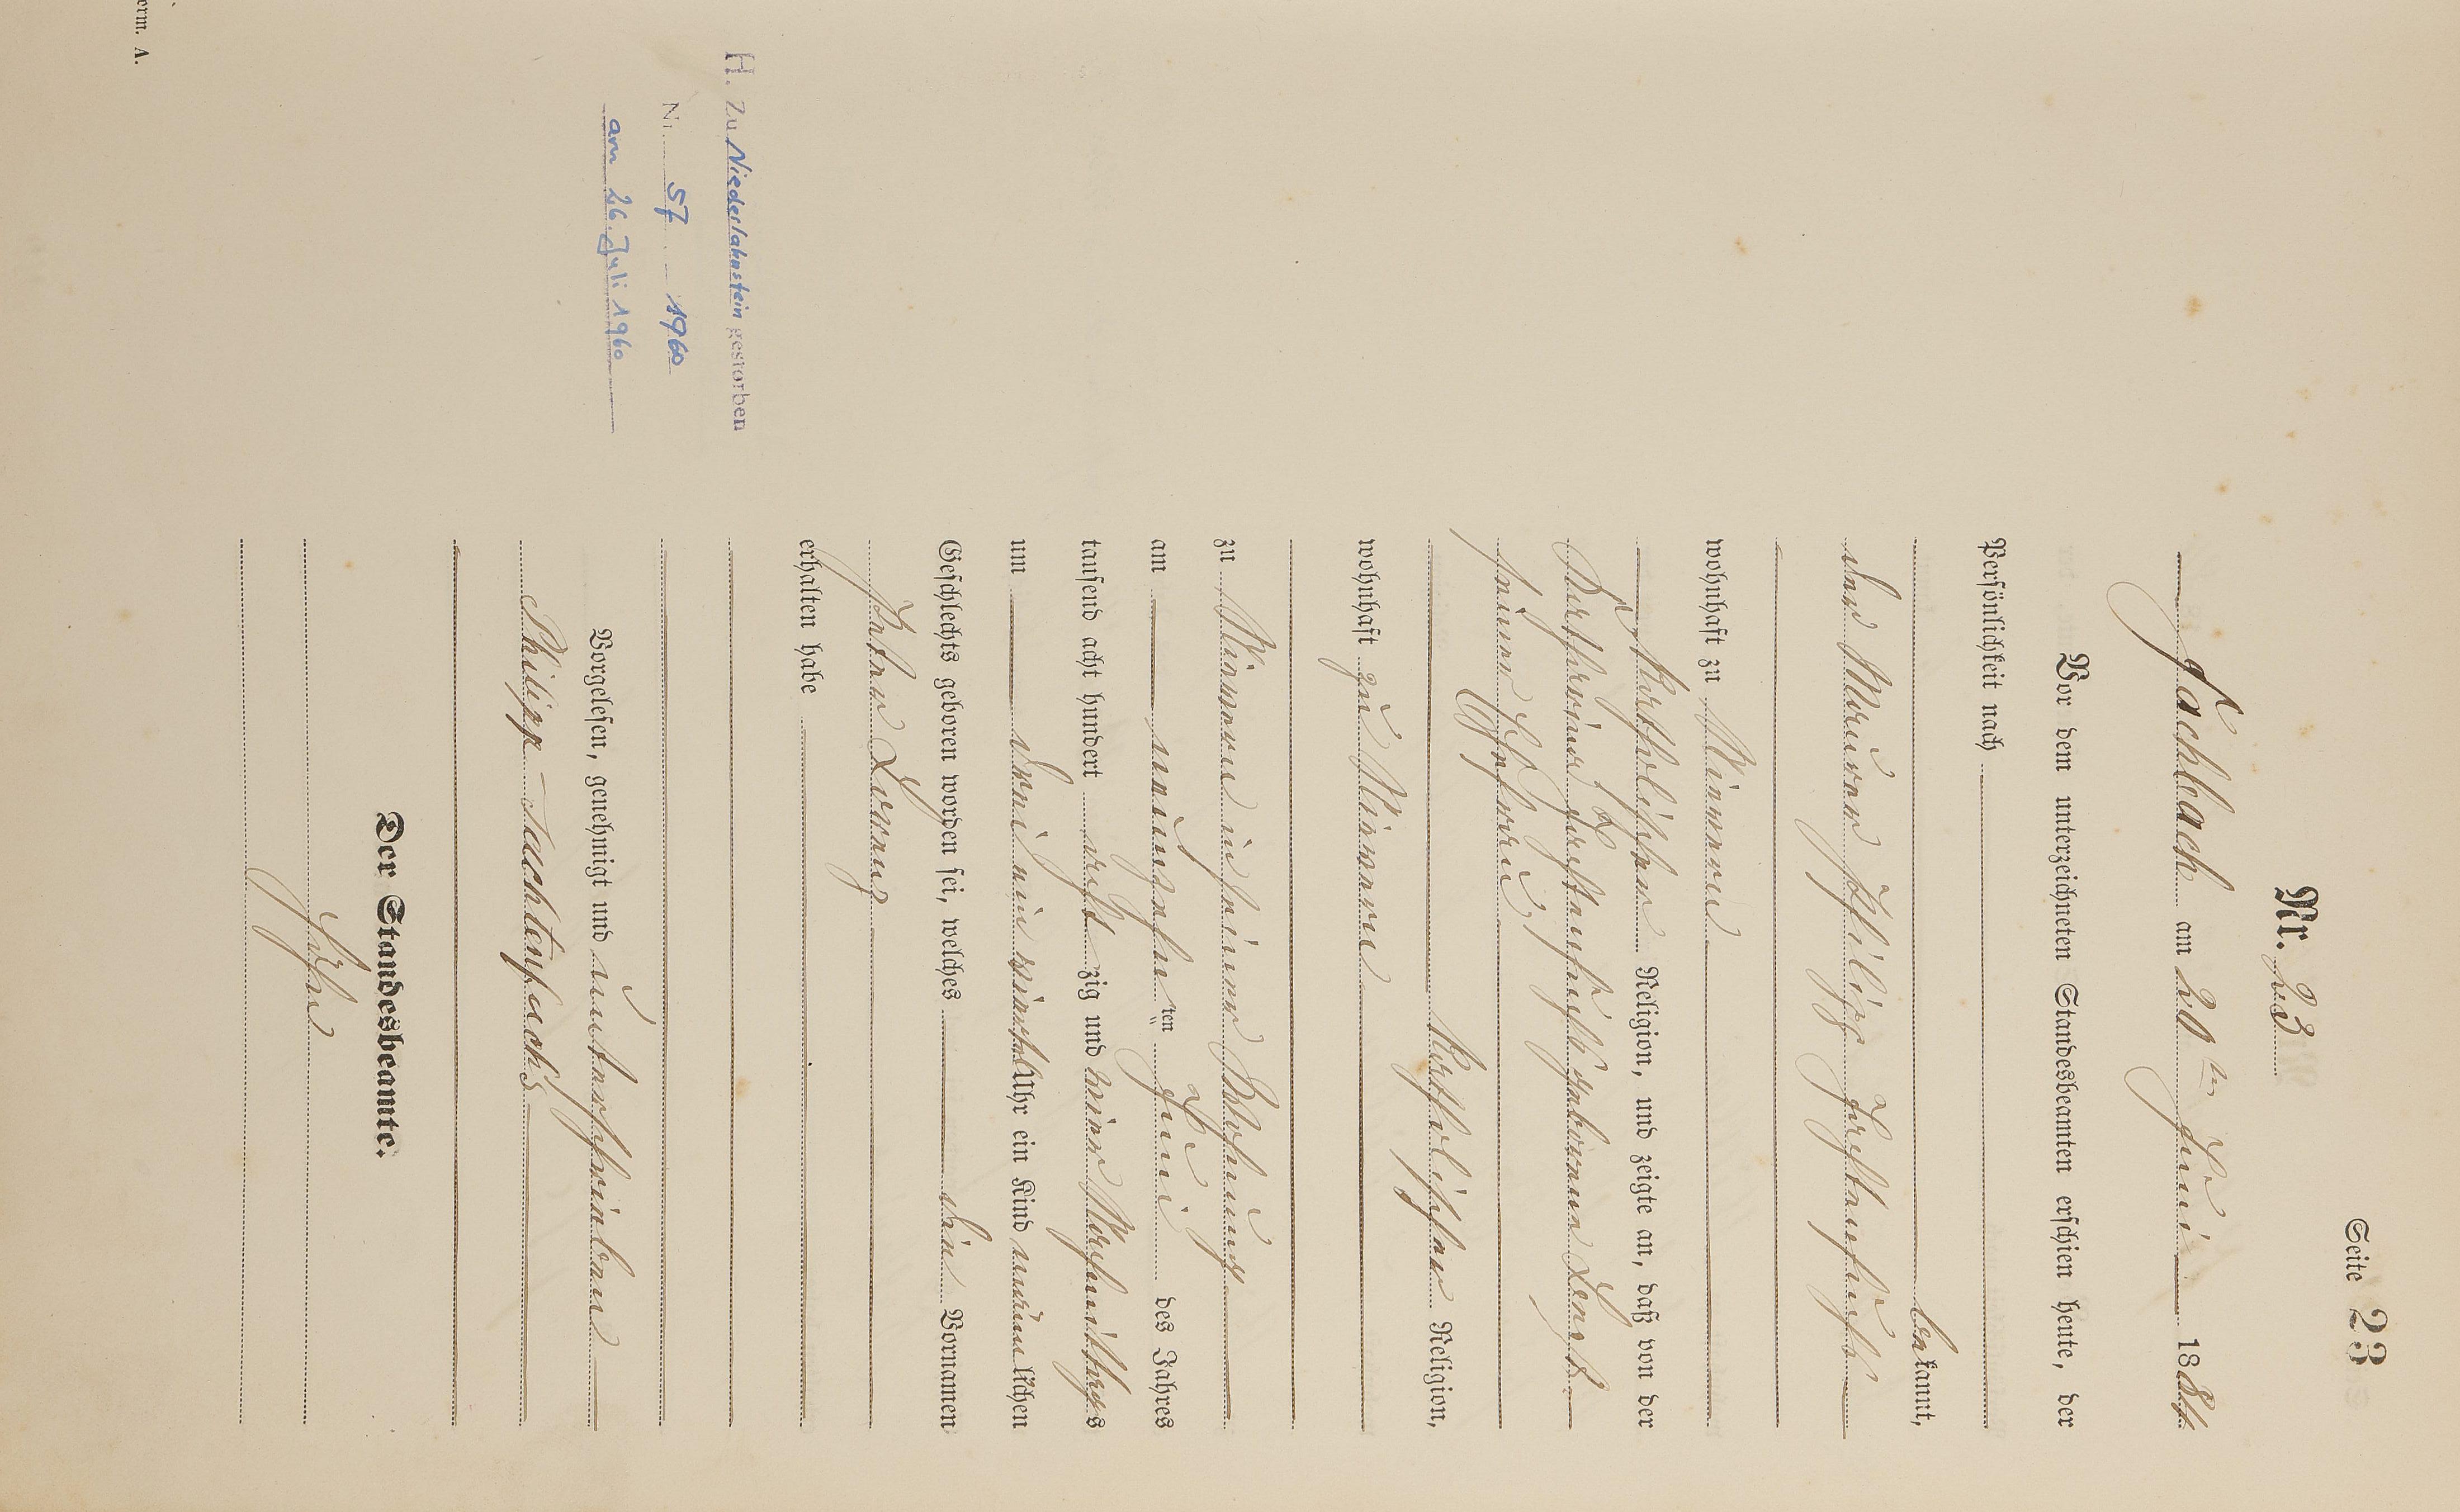 Seite 23
Nr. 23
Fachbach am 20ten Juni 1884
Vor dem unterzeichneten Standesbeamten erschien heute, der
Persönlichkeit nach
bekannt,
der Maurer Philipp Fachtenfuchs
wohnhaft zu Miewern
katholischer Religion, und zeigte an, daß von der
Katharina Fachtenfuchs geborene
seiner Ehefrau,
katholischer Religion,
wohnhaft zu Miewern
zu Miewern in seiner Wohnung
am neunzehnten Juni des Jahres
tausend acht hundert achtzig und vier Nachmittags
um drei ein viertel Uhr ein Kind männlichen
Geschlechts geboren worden sei, welches die Vornamen
Peter Lorenz
erhalten habe
Vorgelesen, genehmigt und unterschrieben
Philipp Fachtenfuchs
Der Standesbeamte.
H. Zu Niederlahnstein gestorben
Nr. 57 1960
am 26. Juli 1960
orm. A.